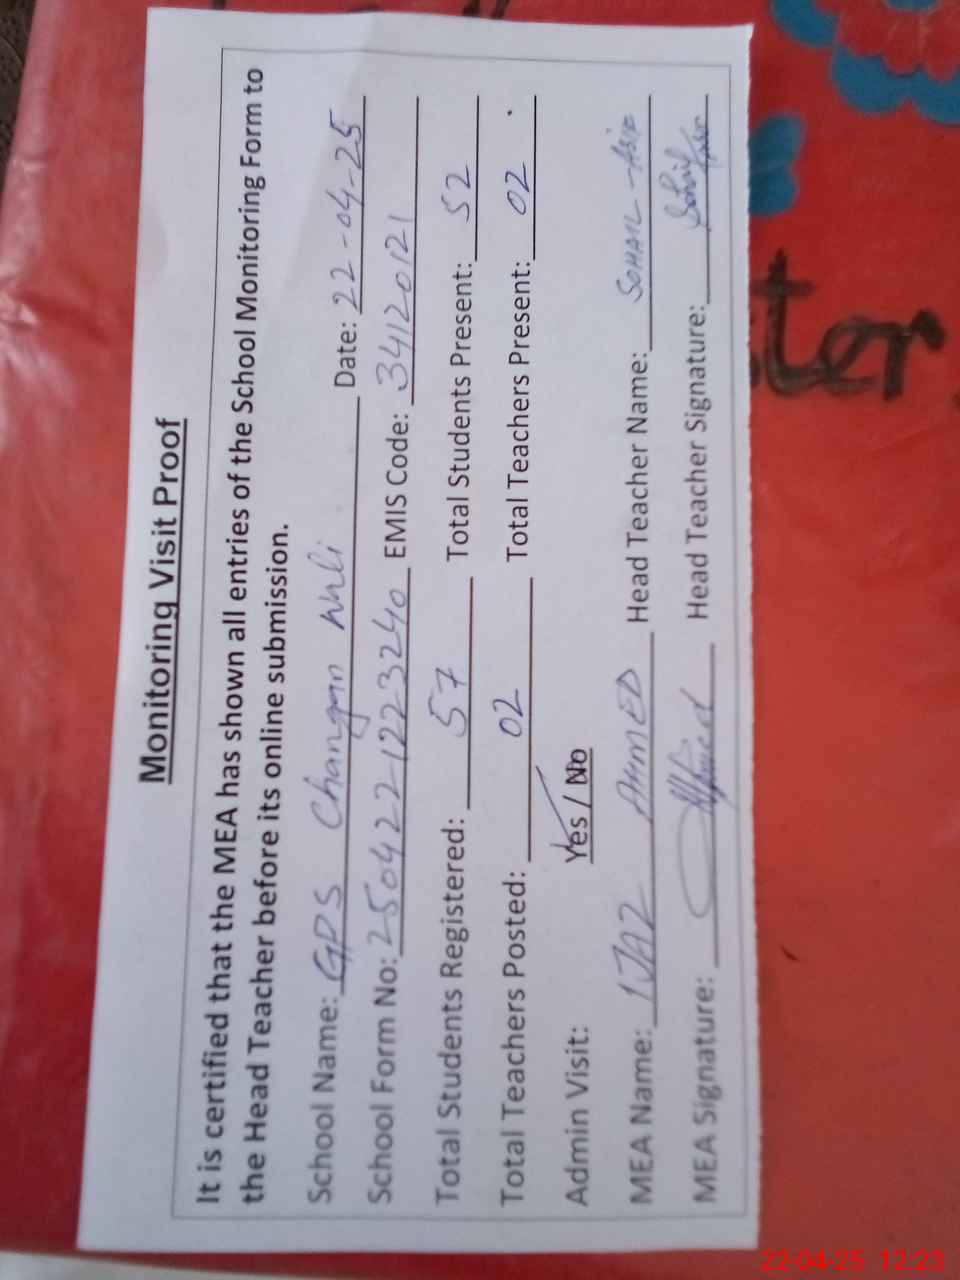 Monitoring Visit Proof
It is certified that the MEA has shown all entries of the School Monitoring Form to
the Head Teacher before its online submission.
School Name: GPS Changan Wali Date: 22-04-25
School Form No: 250422-1223240 EMIS Code: 34120121
Total Students Registered: 57 Total Students Present: 52
Total Teachers Posted: 02 Total Teachers Present: 02
Admin Visit: Yes / No
MEA Name: IJAZ AHMED Head Teacher Name: SOHAIL-ASIF
MEA Signature: Head Teacher Signature: Sohail
ter
22-04-25 12:23